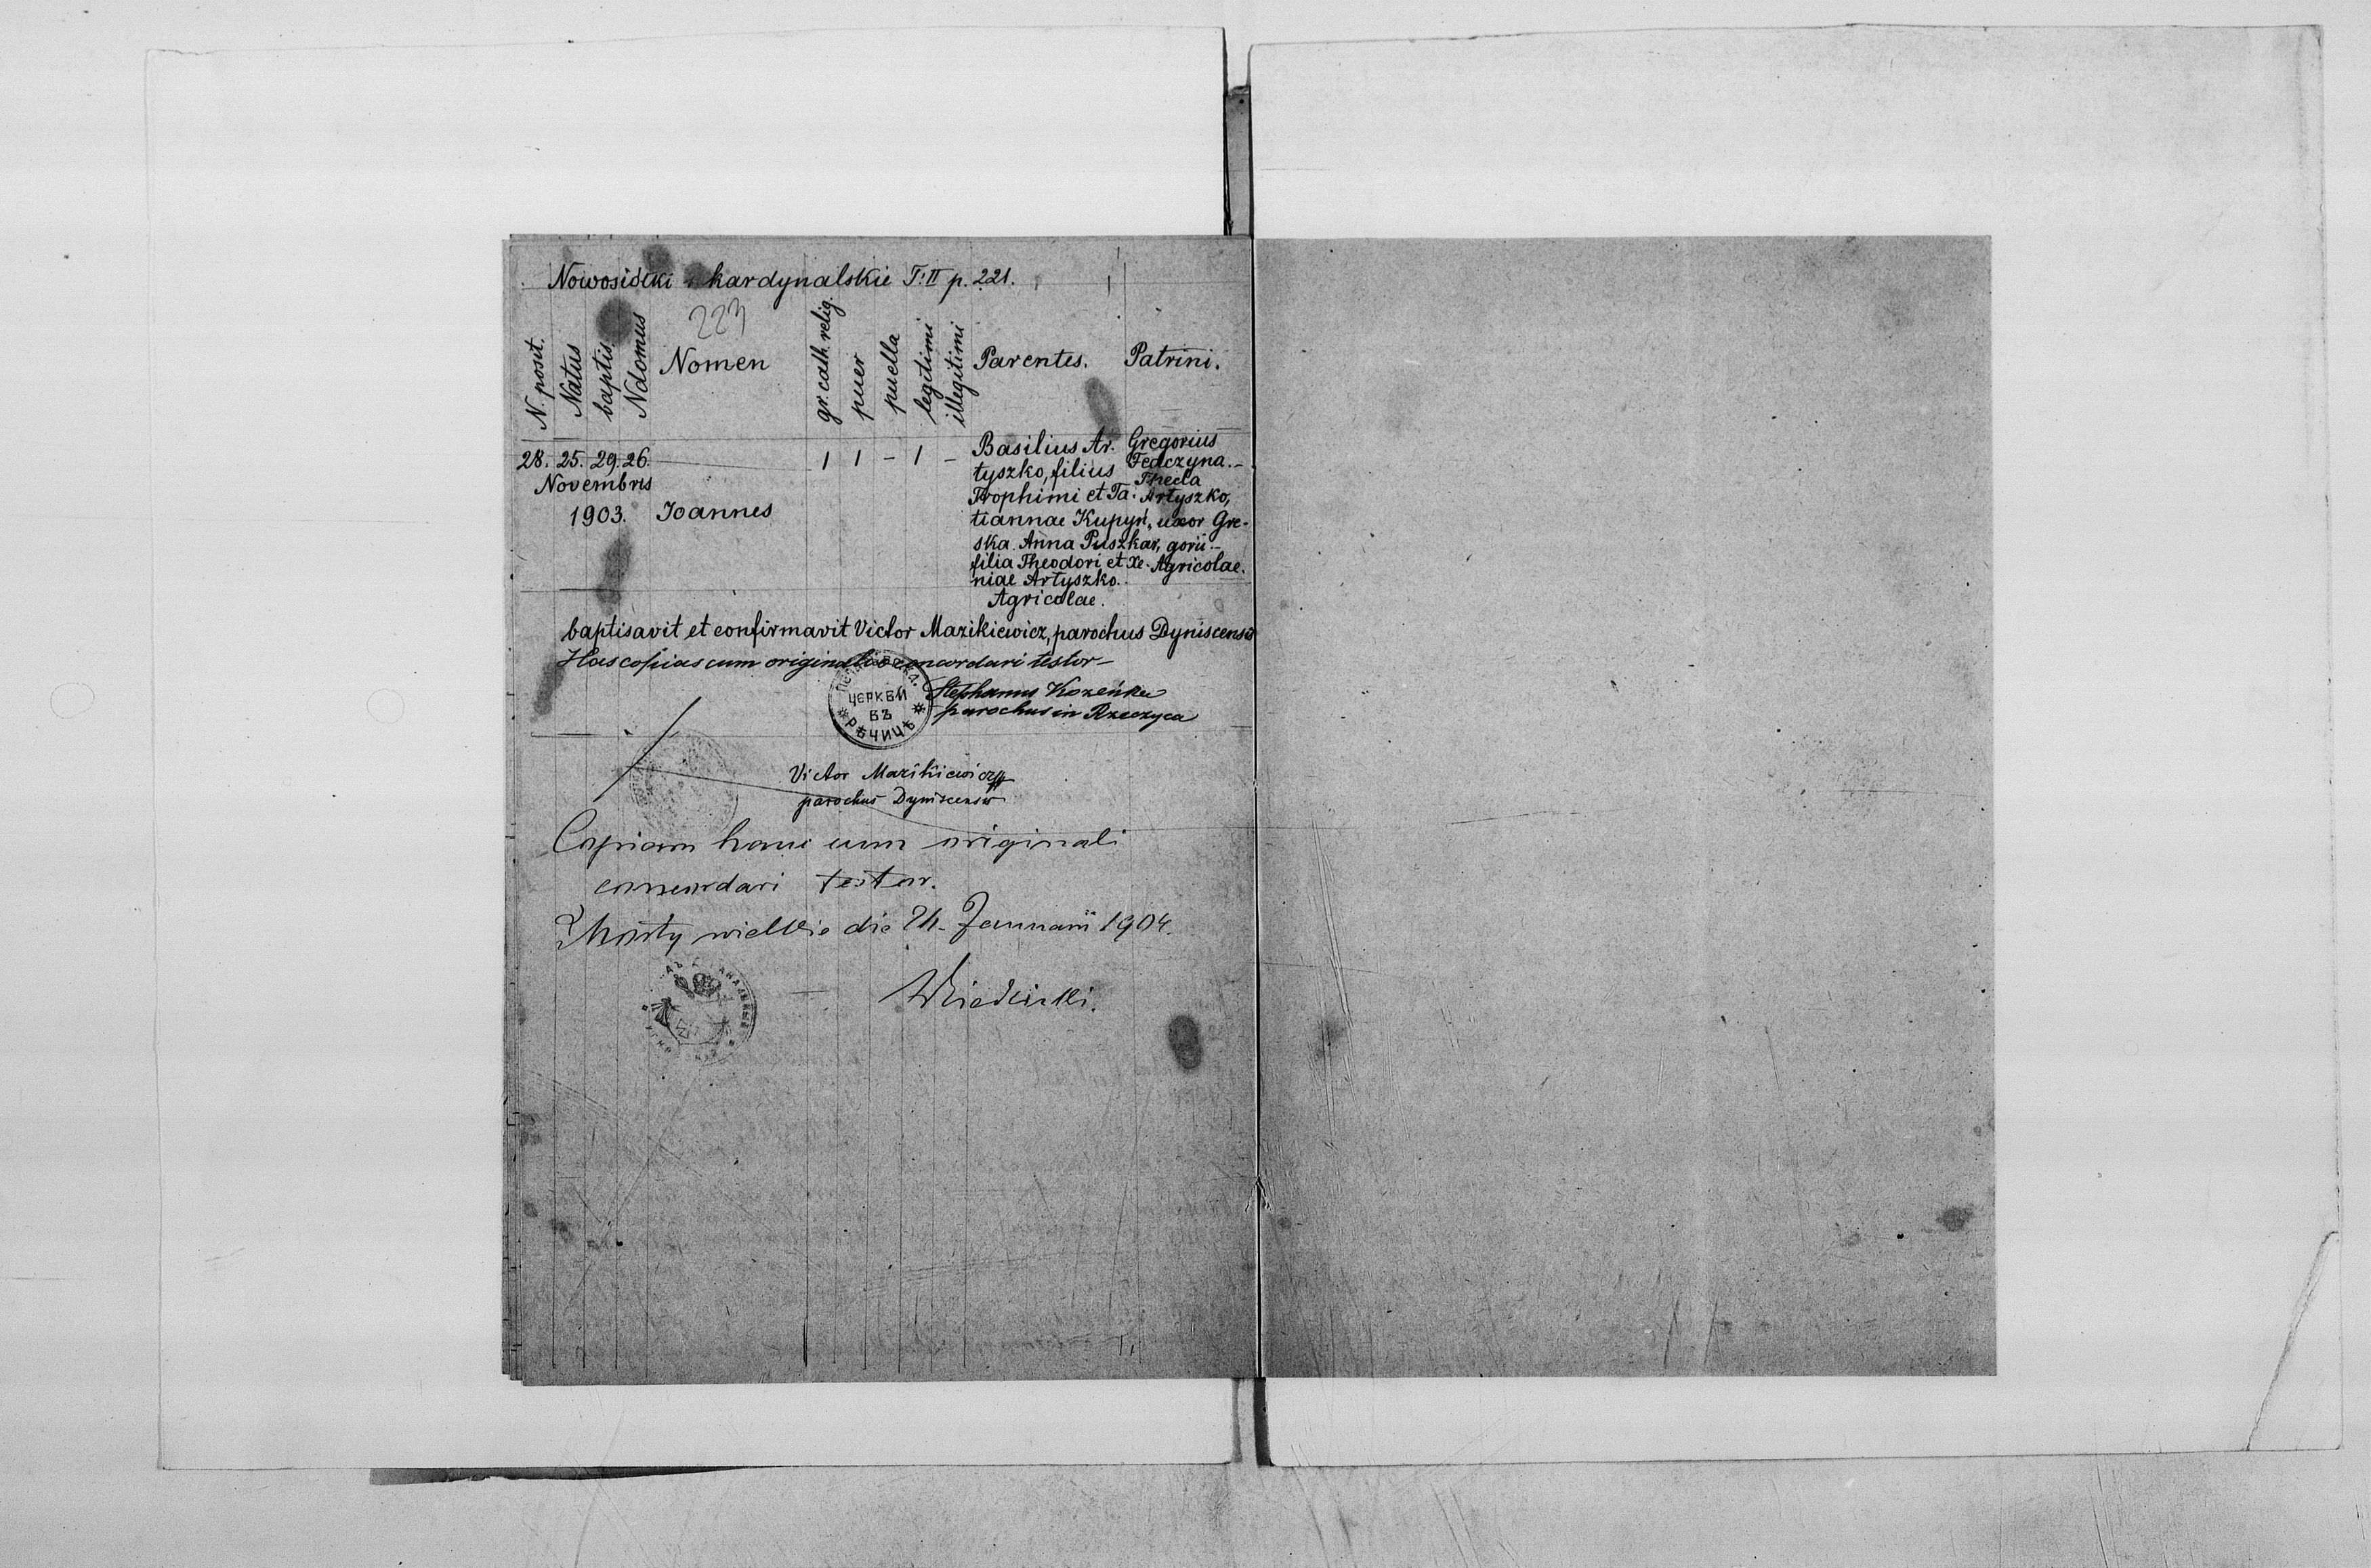 Nowosiółki kardynalskie T: II p. 221.
223
N. posit.
Natus
baptis.
Ndomus
Nomen
gr. cath. relig.
puer
puella
legitimi
illegitimi
Parentes.
Patrini.
28. 25. 29. 26.
Novembris
1903. Joannes
1 1 - 1 -
Basilius Ar-
tyszko, filius
Trophimi et Ta-
tiannae Kupyń-
ska. Anna Puszkar,
filia Theodori et Xe-
niae Artyszko.
Agricolae.
Gregorius
Fedczyna.-
Thecla
Artyszko,
uxor Gre-
gorii-
Agricolae.
baptisavit et confirmavit Victor Mazikiewicz, parochus Dyniscensis
Has copias cum originalibus concordari testor-
ЦЕРКВИ
ВЪ
РѢЧИЦѢ
Stephanus Kozenko
parochus in Rzeczyca
Victor Mazikiewicz
parochus Dyniscensis
Copiam hanc cum originali
concordari testor.
Mosty wielkie die 24. Januarii 1904.